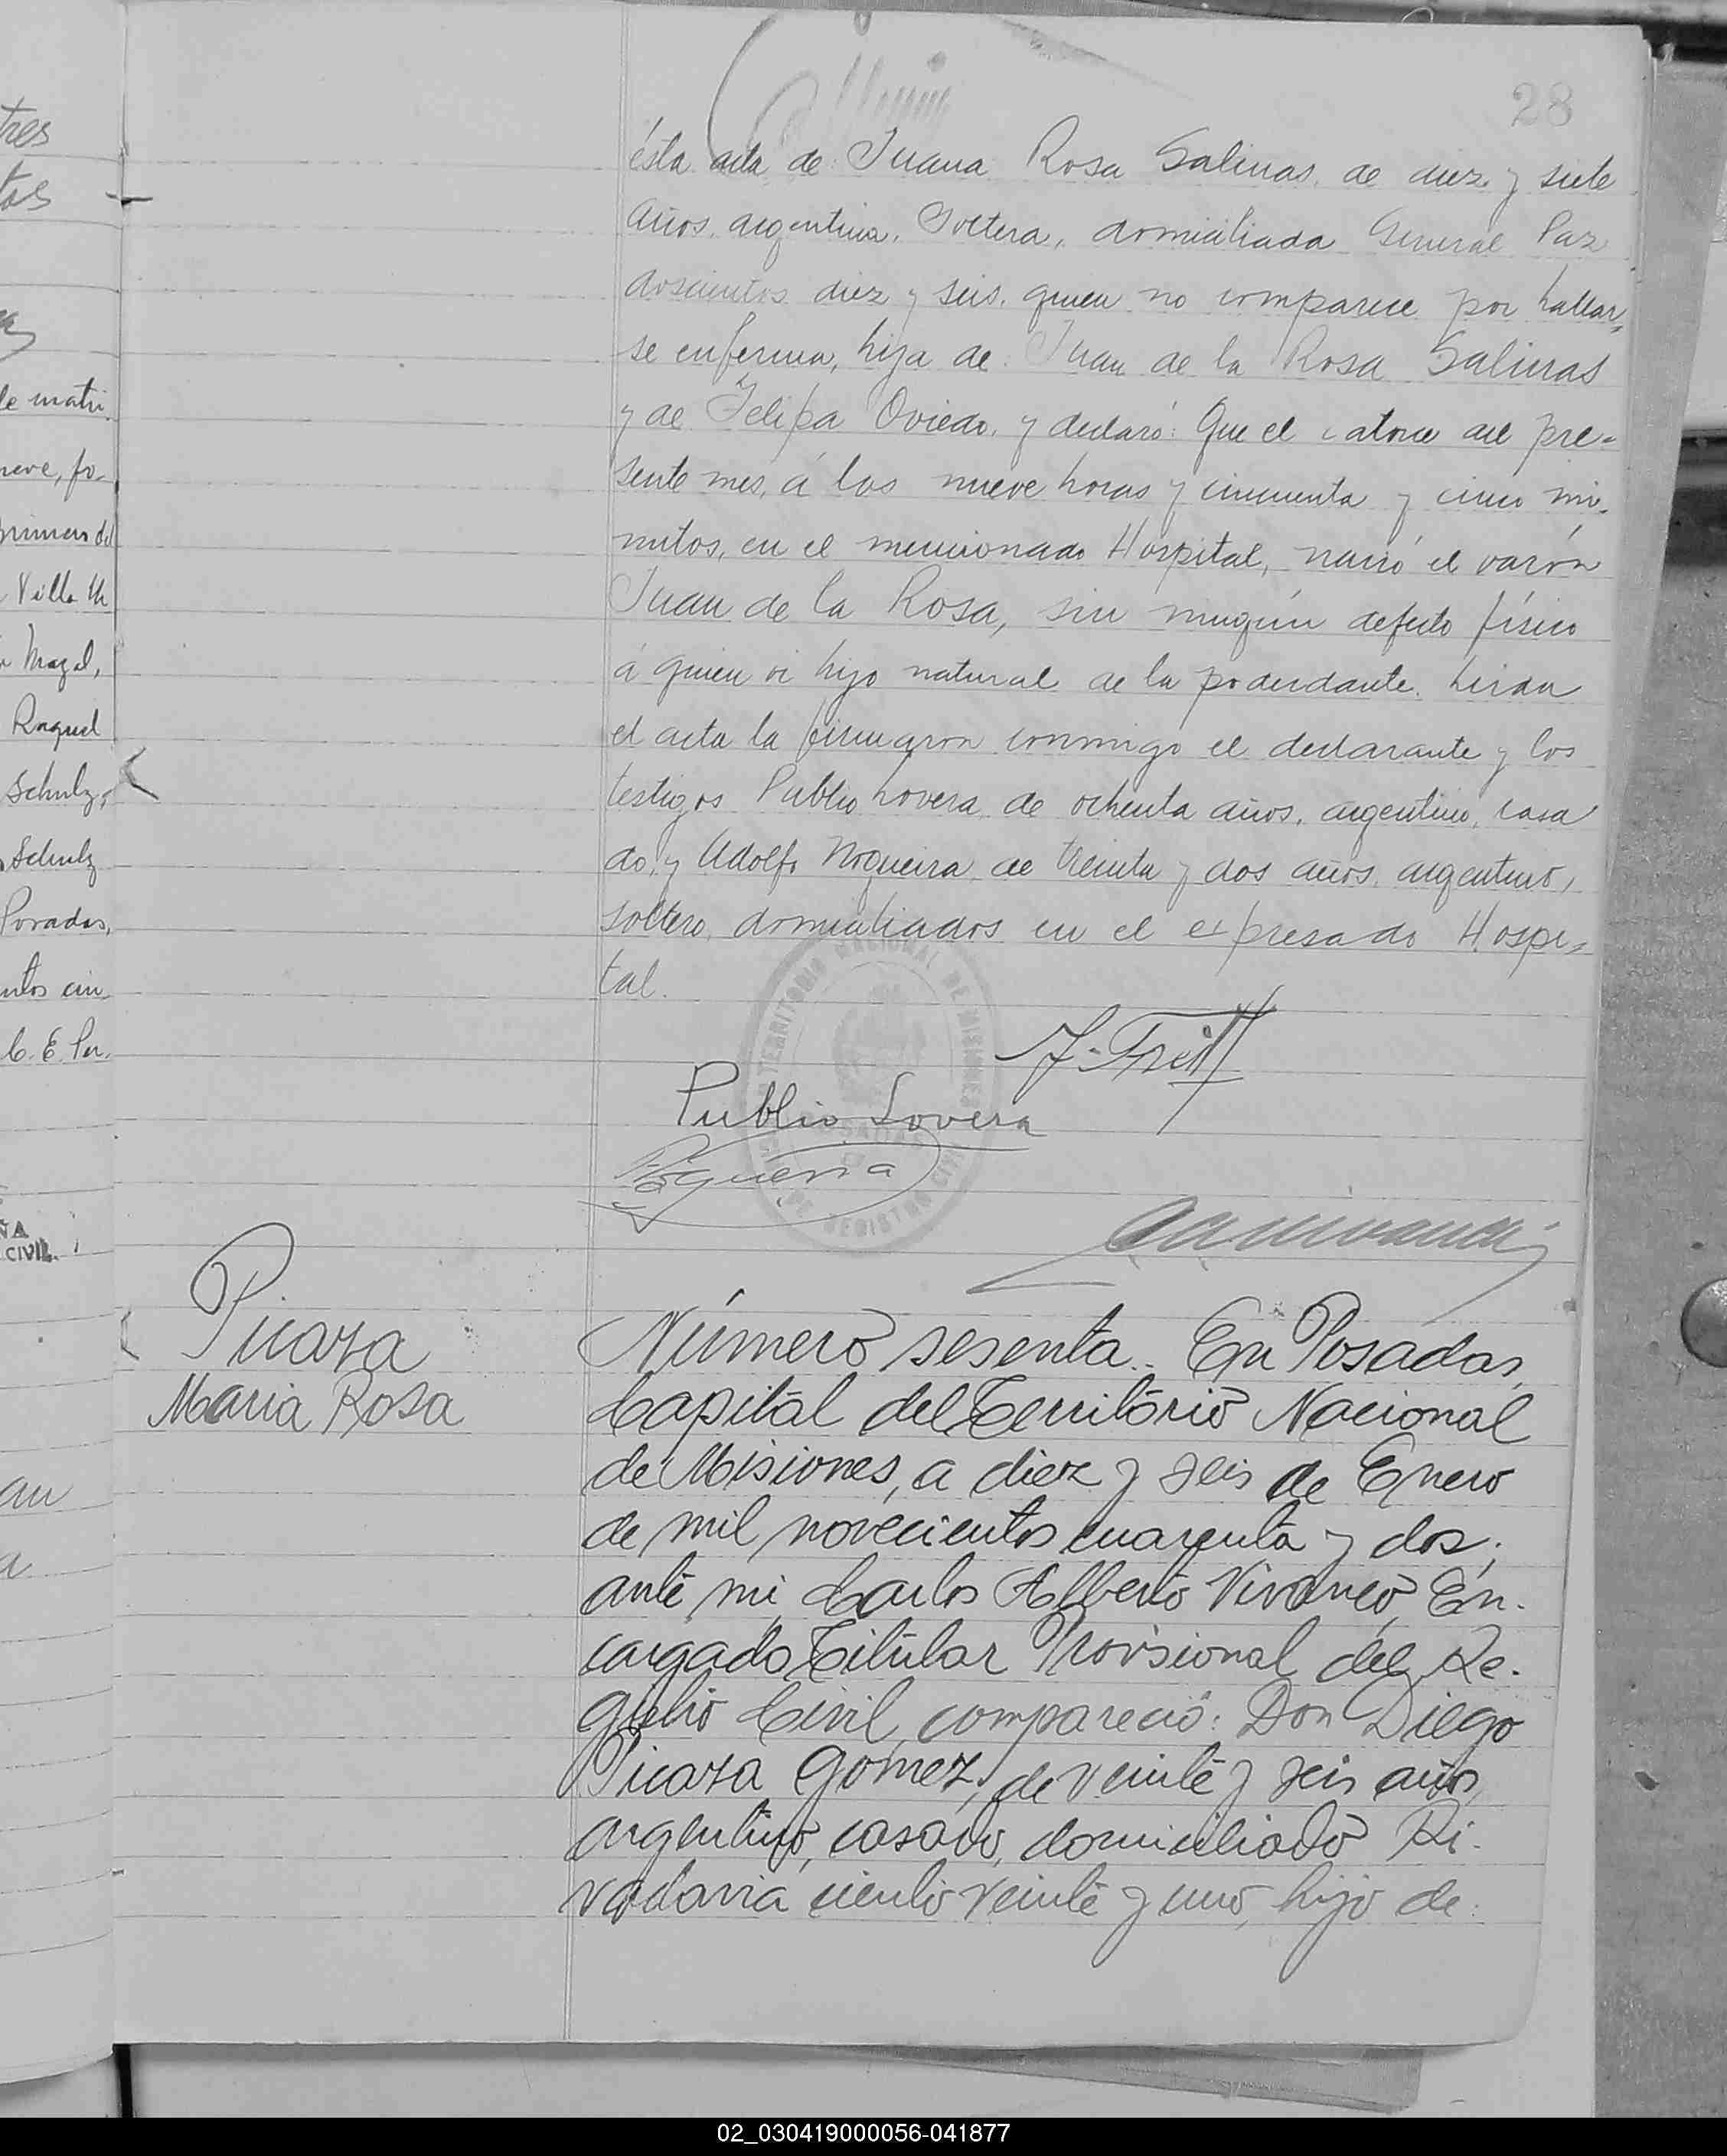 28
ésta acta de Juana Rosa Salinas, de diez y siete
años, argentina, soltera, domiciliada General Paz
doscientos diez y seis, quien no comparece por hallar-
se enferma, hija de Juan de la Rosa Salinas
y de Felipa Oviedo, y declaró: Que el catorce del pre-
sente mes, á las nueve horas y cincuenta y cinco mi-
nutos, en el mencionado Hospital, nació el varón
Juan de la Rosa, sin ningún defecto físico
á quien vi hijo natural de la poderdante. Leida
el acta la firmaron conmigo el declarante y los
testigos Publio Lovera de ochenta años, argentino, casa
do, y Adolfo Nogueira de treinta y dos años, argentino,
soltero, domiciliados en el expresado Hospi-
tal.
Publio Lovera
Nogueira
TERRITORIO NACIONAL DE MISIONES
Picaza
Maria Rosa
Número sesenta. En Posadas,
Capital del Territorio Nacional
de Misiones, a diez y seis de Enero
de mil novecientos cuarenta y dos;
ante mi, Carlos Alberto Vivanco, En-
cargado Titular Provisional del Re-
gistro Civil, compareció: Don Diego
Picaza Gomez, de veinte y seis años,
argentino, casado, domiciliado Ri-
vadavia ciento veinte y uno, hijo de:
tres
tos
de matri
nueve, fo-
Villa
Raquel
Schulz,
Schulz
Posadas,
CIVIL
02_030419000056-041877